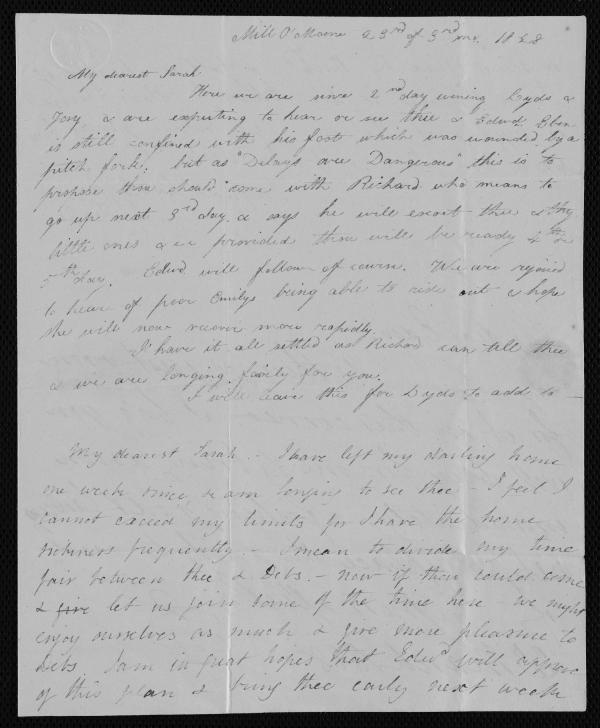 Mill O'Moone 23rd of 3rd mo. 1828
My dearest Sarah
Here we are since 2nd day evening Lydia &
& are expecting to hear or see thee & Edwd Eben
is still confined with his foot which was wounded by a
pitch fork; but as "Delays are Dangerous" this is to
propose thou should come with Richard who means to
go up next 3rd day & says he will escort thee & thy
little ones &c provided thou will be ready 4th or
5th day. Edwd will follow of course. We are rejoiced
to hear of poor Emilys being able to ride out & hope
she will now recover more rapidly.
I have it all settled as Richard can tell thee
& we are longing fairly for you.
I will leave this for Lydia to add to —
My dearest Sarah .- I have left my darling home
one week since, & am longing to see thee - I feel I
cannot exceed my limits for I have the home
sickness frequently .- I mean to divide my time
fair between thee & Debs .- now if thou could come
& give let us join some of the time here we might
enjoy ourselves as much & give more pleasure to
Debs I am in great hopes that Edwd will approve
of this plan & bring thee early next week